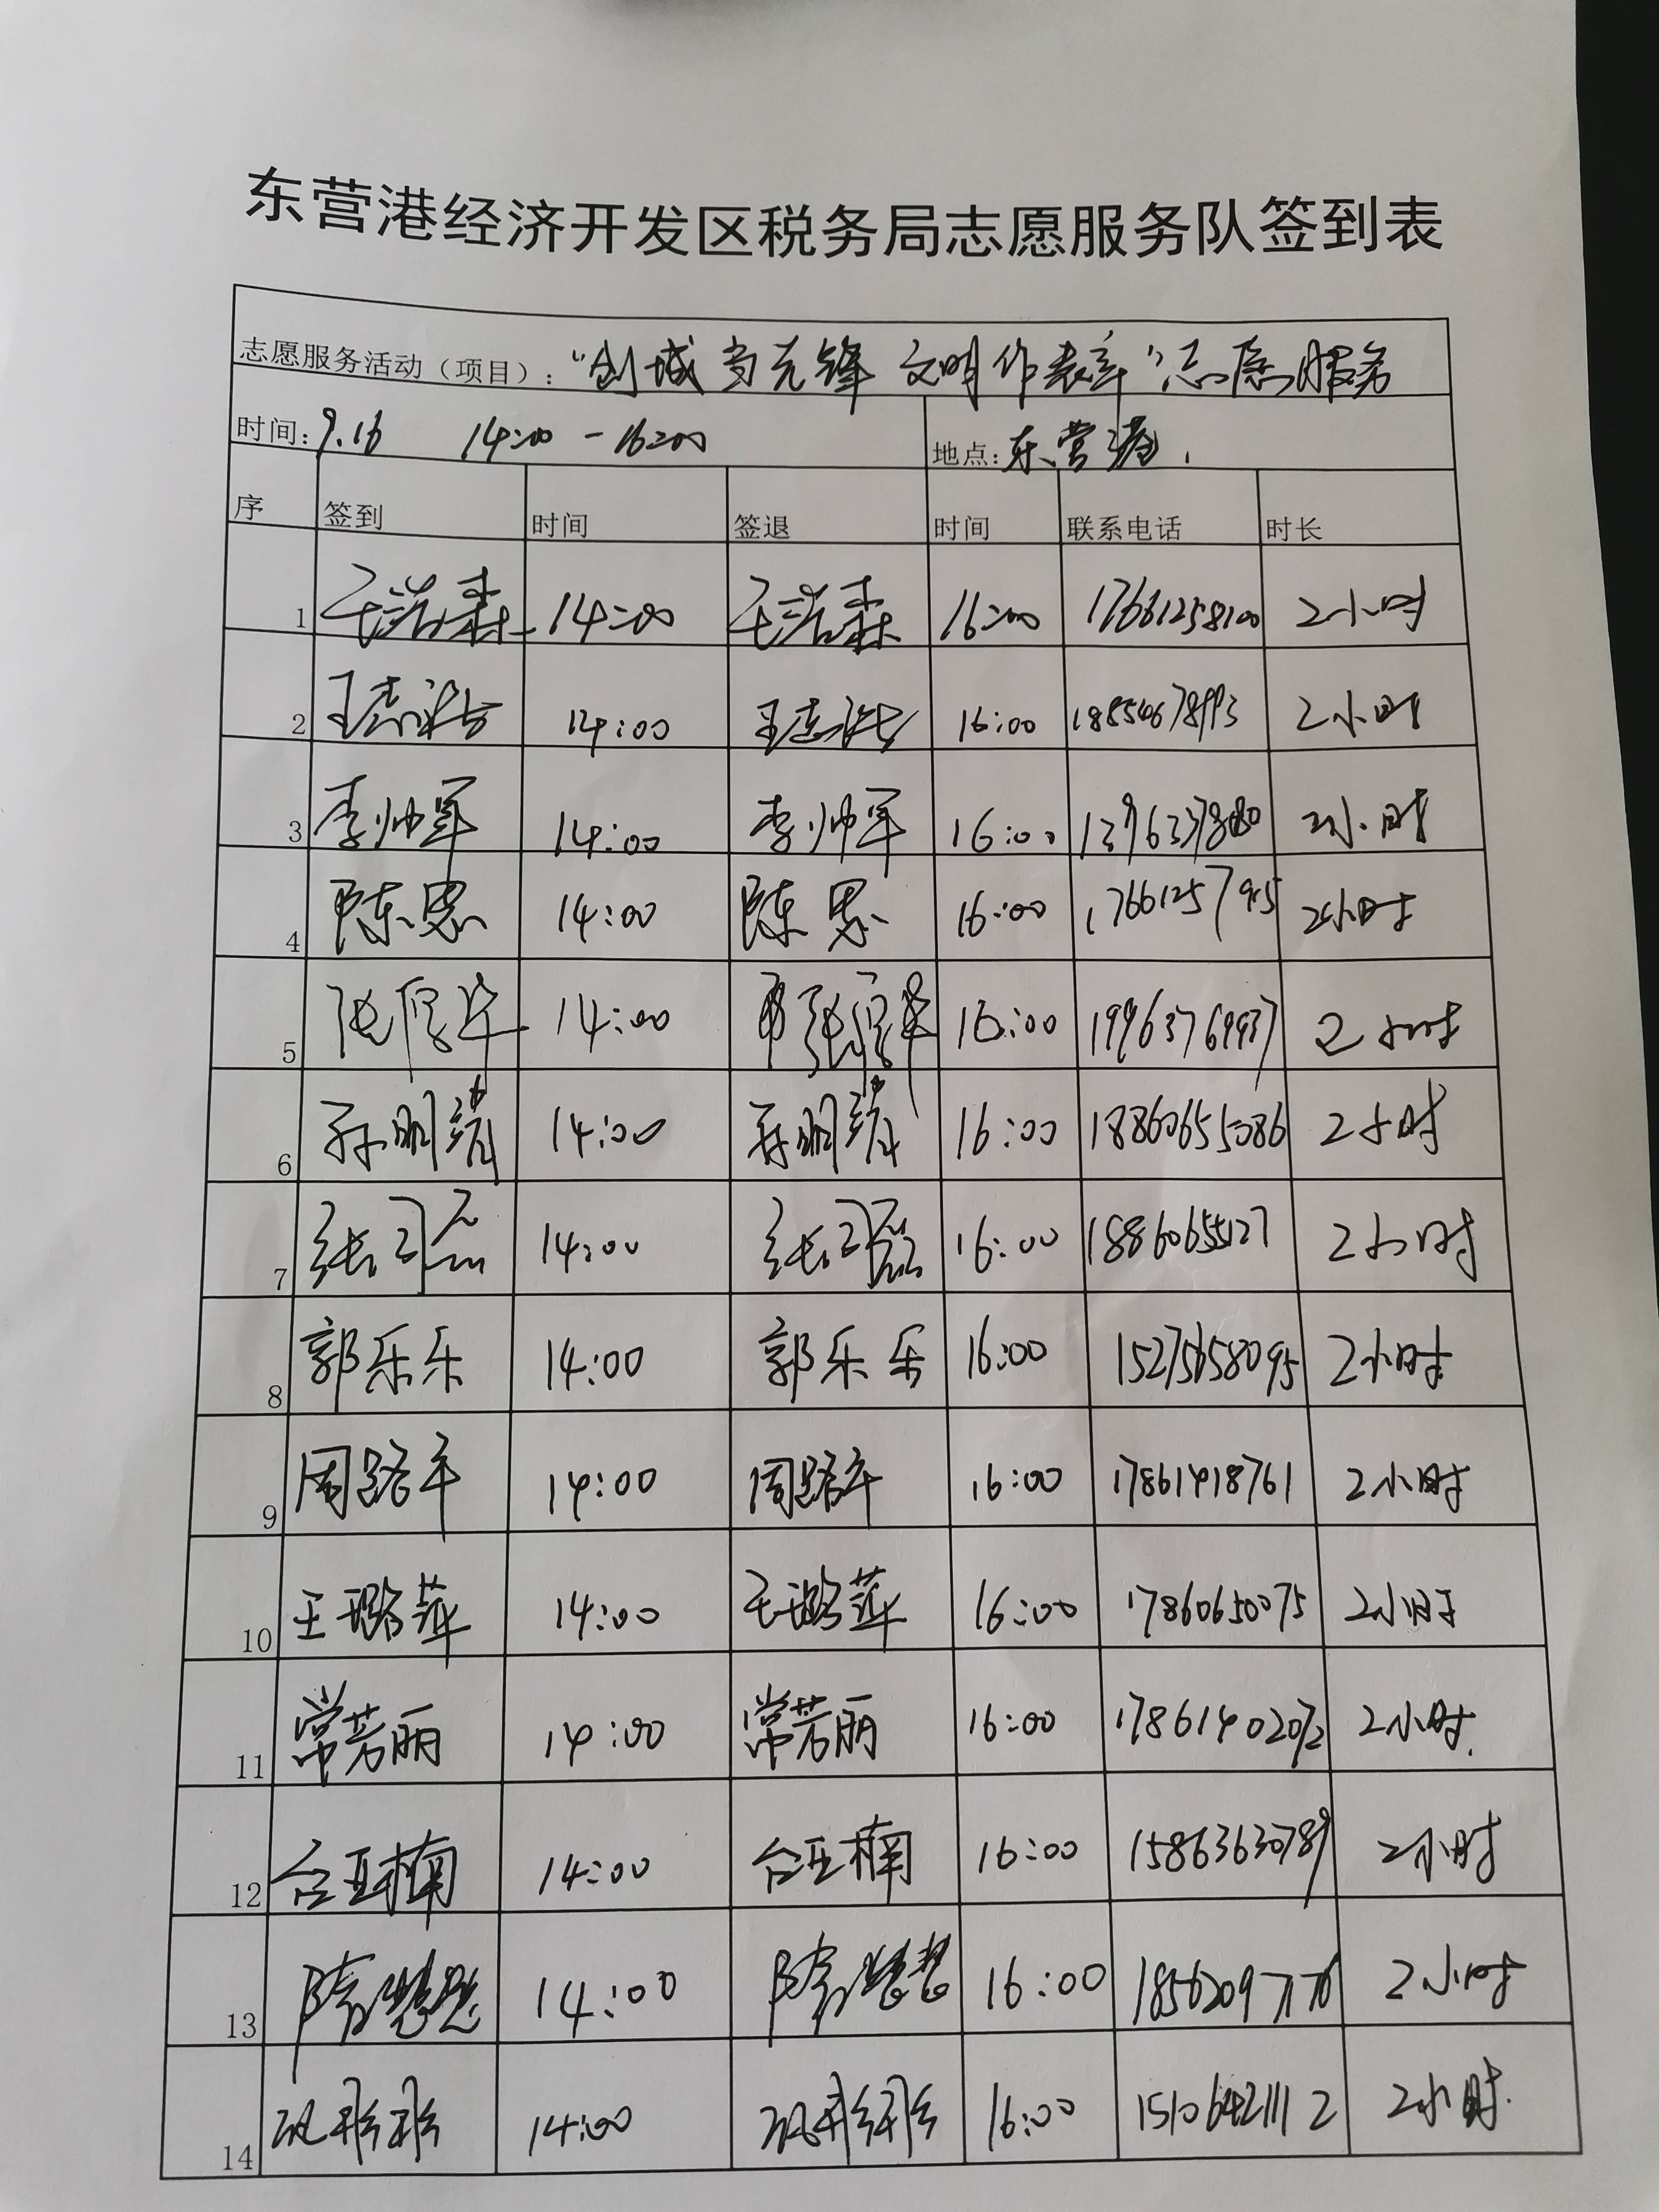 东营港经济开发区税务局志愿服务队签到表
志愿服务活动（项目）：“创城当先锋 文明作表率”志愿服务
时间：9.16 14:00-16:00 地点：东营港
序 签到 时间 签退 时间 联系电话 时长
1 王浩森 14:00 王浩森 16:00 17661258100 2小时
2 14:00 16:00 2小时
3 李帅军 14:00 李帅军 16:00 2小时
4 陈思 14:00 陈思 16:00 2小时
5 14:00 16:00 2小时
6 孙明靖 14:00 孙明靖 16:00 18860655086 2小时
7 张司磊 14:00 张司磊 16:00 18860655127 2小时
8 郭乐乐 14:00 郭乐乐 16:00 15275658095 2小时
9 周路平 14:00 周路平 16:00 17861418761 2小时
10 王璐萍 14:00 王璐萍 16:00 17860650075 2小时
11 常芳丽 14:00 常芳丽 16:00 17861402072 2小时
12 台亚楠 14:00 台亚楠 16:00 15863630789 2小时
13 14:00 16:00 2小时
14 14:00 16:00 15106421112 2小时